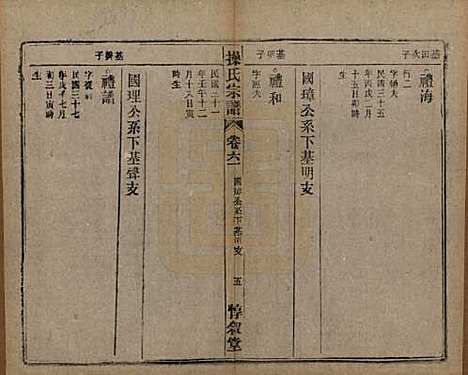 基田次子
禮海
行二
字錫夫
民國三十五
年丙戌二月
十五日卯時
生
國璋公系下基明支
基明子
禮和
字煦夫
操氏宗譜
卷六二
國璋公系下基田支
五
惇敘堂
民國三十一
年壬午十二
月十六日寅
時生
國理公系下基聲支
基聲子
禮譜
字從和
民國三十七
年戊子七月
初三日寅時
生